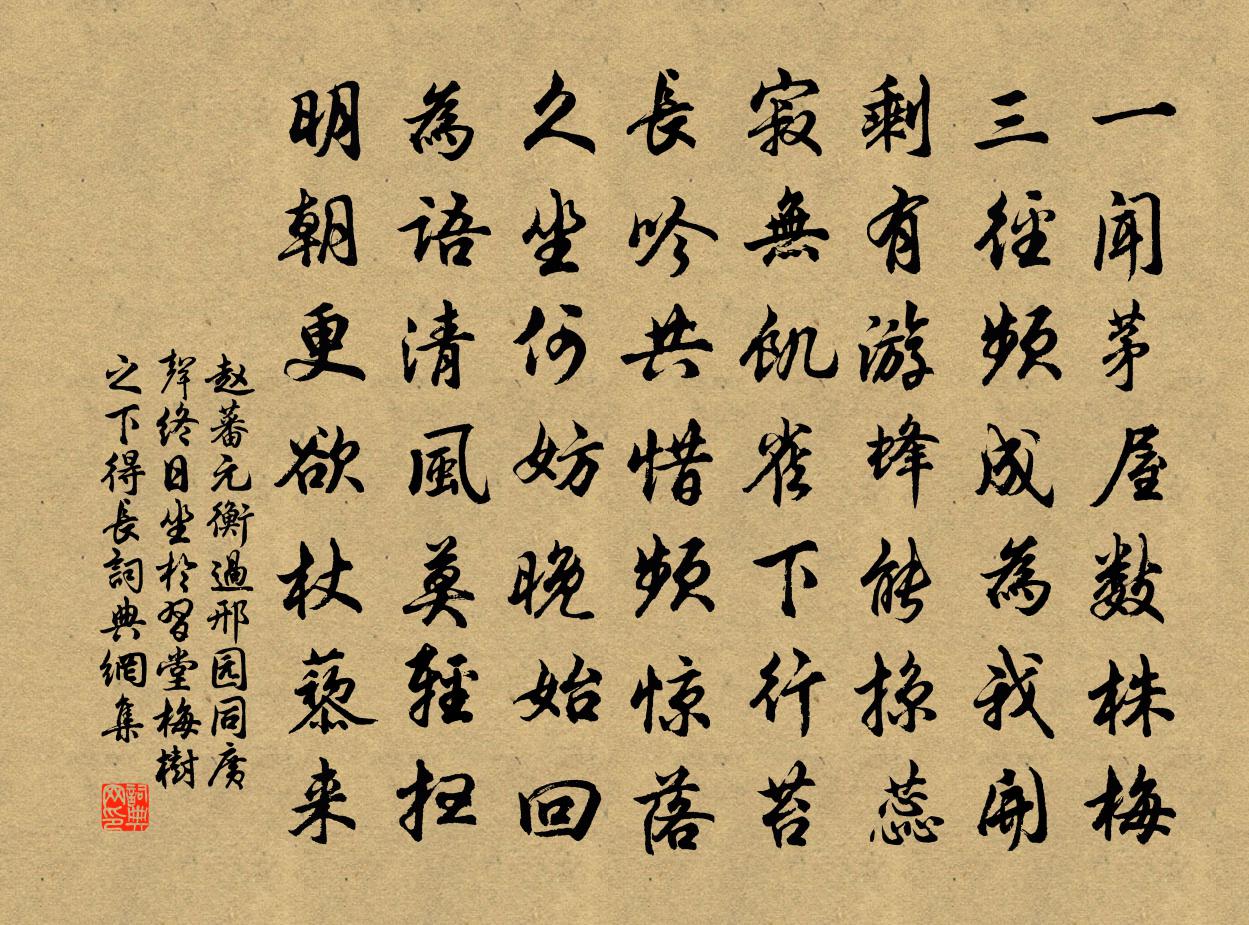 一聞茅屋數株梅
三徑頻成為我開
剩有游蜂能掠蕊
寂無飢雀下行苔
長吟共惜頻惊落
久坐何妨晚始回
為語清風莫輕扫
明朝更欲杖藜来
赵蕃元衡過邢园同廣
聲终日坐於習堂梅樹
之下得長詞典網集
詞典网印